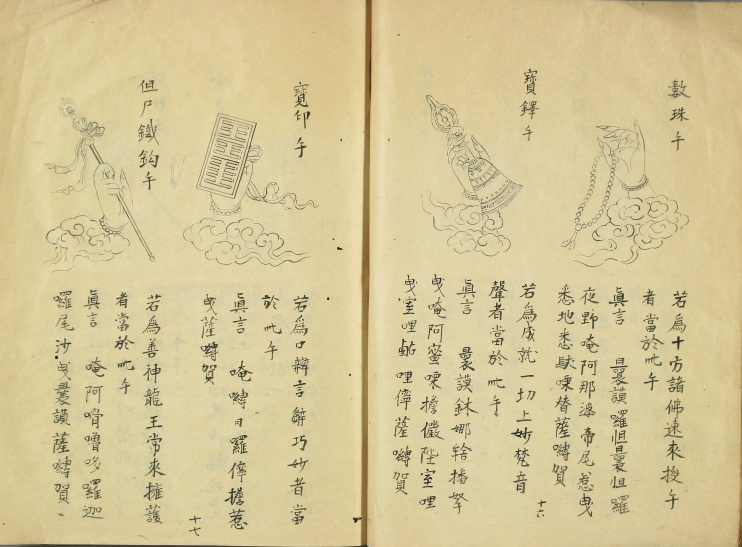 數珠手
若為十方諸佛速來授手
者當於此手
真言 曩謨囉怛曩怛囉
夜野唵阿那婆帝尾惹曳
悉地悉馱㗚替薩嚩賀
寶鐸手
若為成就一切上妙梵音
聲者當於此手
真言 曩謨鉢娜
播拏
曳唵阿蜜㗚擔儼陛室哩
曳室哩
哩儜薩嚩賀
十六
寶印手
若為口辯言辭巧妙者當
於此手
真言 唵嚩日囉儜擔惹
曳薩嚩賀
十七
但尸鐵鈎手
若為善神龍王常來擁護
者當於此手
真言 唵阿嚕
哆囉迦
囉尾沙曳曩謨薩嚩賀